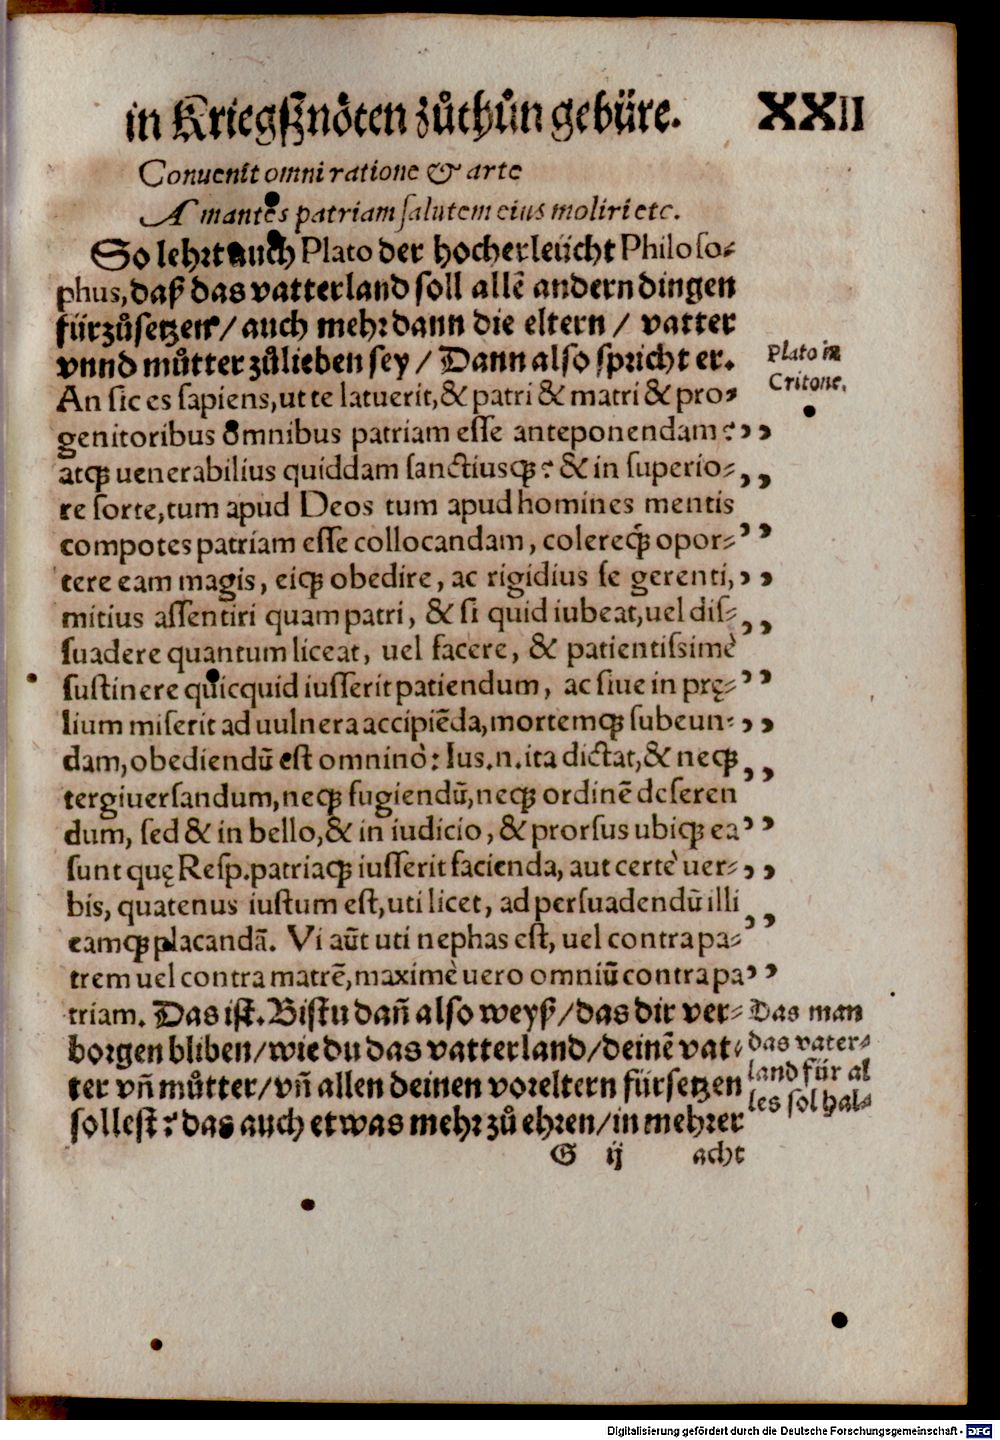 in Kriegßnöten zůthůn gebüre. XXII
Conuenit omni ratione & arte
Amantes patriam salutem eius moliri etc.
So lehrt auch Plato der hocherleücht Philoso-
phus, daß das vatterland soll allẽ andern dingen
fürzůsetzen / auch mehr dann die eltern / vatter
vnnd můtter zůlieben sey / Dann also spricht er.
Plato in
Critone.
An sic es sapiens, ut te latuerit, & patri & matri & pro-
genitoribus omnibus patriam esse anteponendam?
atqꝫ uenerabilius quiddam sanctiusqꝫ? & in superio-
re sorte, tum apud Deos tum apud homines mentis
compotes patriam esse collocandam, colereqꝫ opor-
tere eam magis, eiqꝫ obedire, ac rigidius se gerenti,
mitius assentiri quam patri, & si quid iubeat, uel dis-
suadere quantum liceat, uel facere, & patientissimè
sustinere quicquid iusserit patiendum, ac siue in prę-
lium miserit ad uulnera accipiẽda, mortemqꝫ subeun-
dam, obediendũ est omninò: Ius.n.ita dictat, & neqꝫ
tergiuersandum, neqꝫ fugiendũ, neqꝫ ordinẽ deseren
dum, sed & in bello, & in iudicio, & prorsus ubiqꝫ ea
sunt quę Resp. patriaqꝫ iusserit facienda, aut certè uer-
bis, quatenus iustum est, uti licet, ad persuadendũ illi
eamqꝫ placandã. Vi aũt uti nephas est, uel contra pa-
trem uel contra matrẽ, maximè uero omniũ contra pa
triam. Das ist. Bistu dañ also weyß / das dir ver-
borgen bliben / wie du das vatterland / deinẽ vat-
ter vñ můtter / vñ allen deinen voreltern fürsetzen
sollest? das auch etwas mehr zů ehren / in mehrer
Das man
das vater-
land für al
les sol hal-
G ij acht
Digitalisierung gefördert durch die Deutsche Forschungsgemeinschaft - DFG